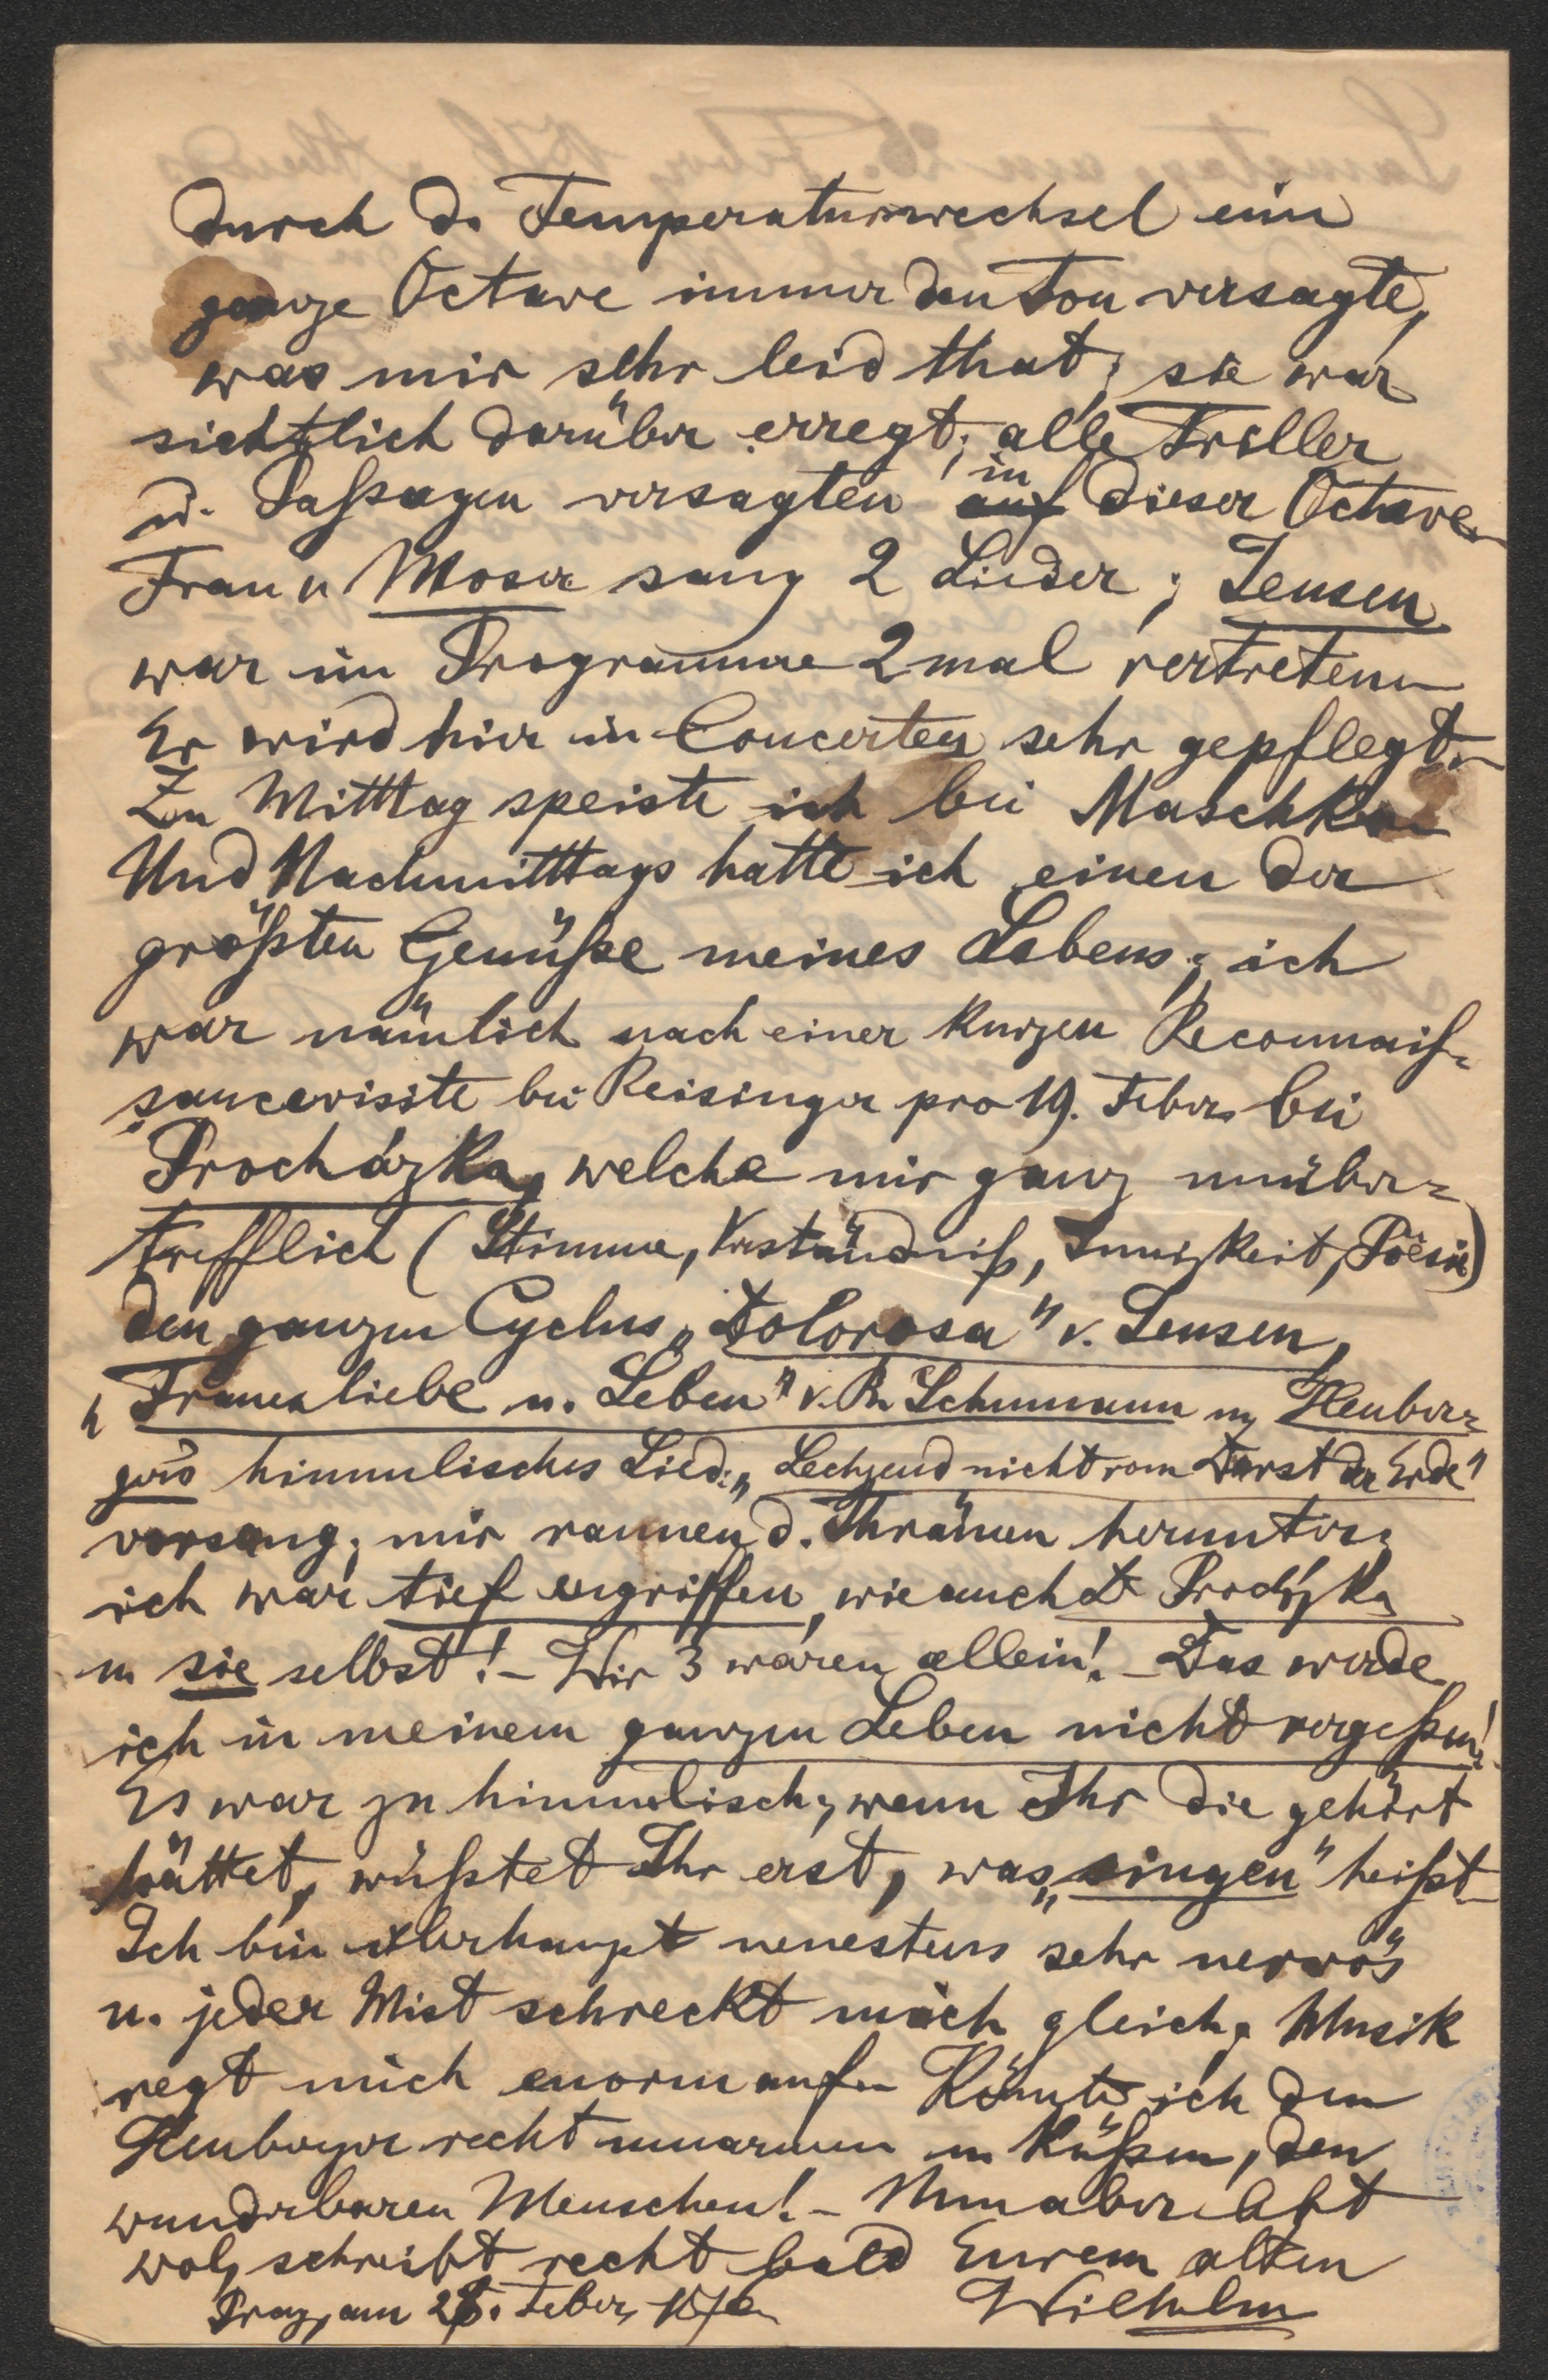 durch d. Temperaturwechsel eine
ganze Octave immer den Ton versagte,
was mir sehr leid that; sie war
sichtlich darüber erregt; alle Triller
u. Paßagen versagten in dieser Octave.
Frau v. Moser sang 2 Lieder; Jensen
war im Programme 2mal vertreten.
Er wird hier in Concerten sehr gepflegt.
Zu Mitttag speiste ich bei Maschka.
Und Nachmitttags hatte ich einen der
größten Genüße meines Lebens; ich
war nämlich nach einer kurzen Reconnaiß-
sancevisite bei Reisinger pro 19. Feber bei
Procházka, welche mir ganz unüber-
trefflich (Stimme, Verständniß, Innigkeit, Poësie)
den ganzen Cyclus „Dolorosa" v. Jensen,
„Frauenliebe u. Leben" v. R. Schumann u. Heuber-
gers himmlisches Lied: „Lechzend nicht vom Durst der Erde"
vorsang; mir rannen d. Thränen herunter;
ich war tief ergriffen, wie auch Dr Proch́zka
u. sie selbst! – Wir 3 waren allein! – Das werde
ich in meinem ganzen Leben nicht vergeßen!
Es war zu himmlisch; wenn Ihr die gehört
hättet, wüßtet Ihr erst, was „singen" heißt.
Ich bin überhaupt neuestens sehr nervös
u. jeder Mist schreckt mich gleich; Musik
regt mich enorm auf. Könnte ich den
Heuberger recht umarmen u. küßen, den
wunderbaren Menschen! – Nun aber lebt
wol, schreibt recht bald Eurem alten
Prag, am 28. Feber Wilhelm